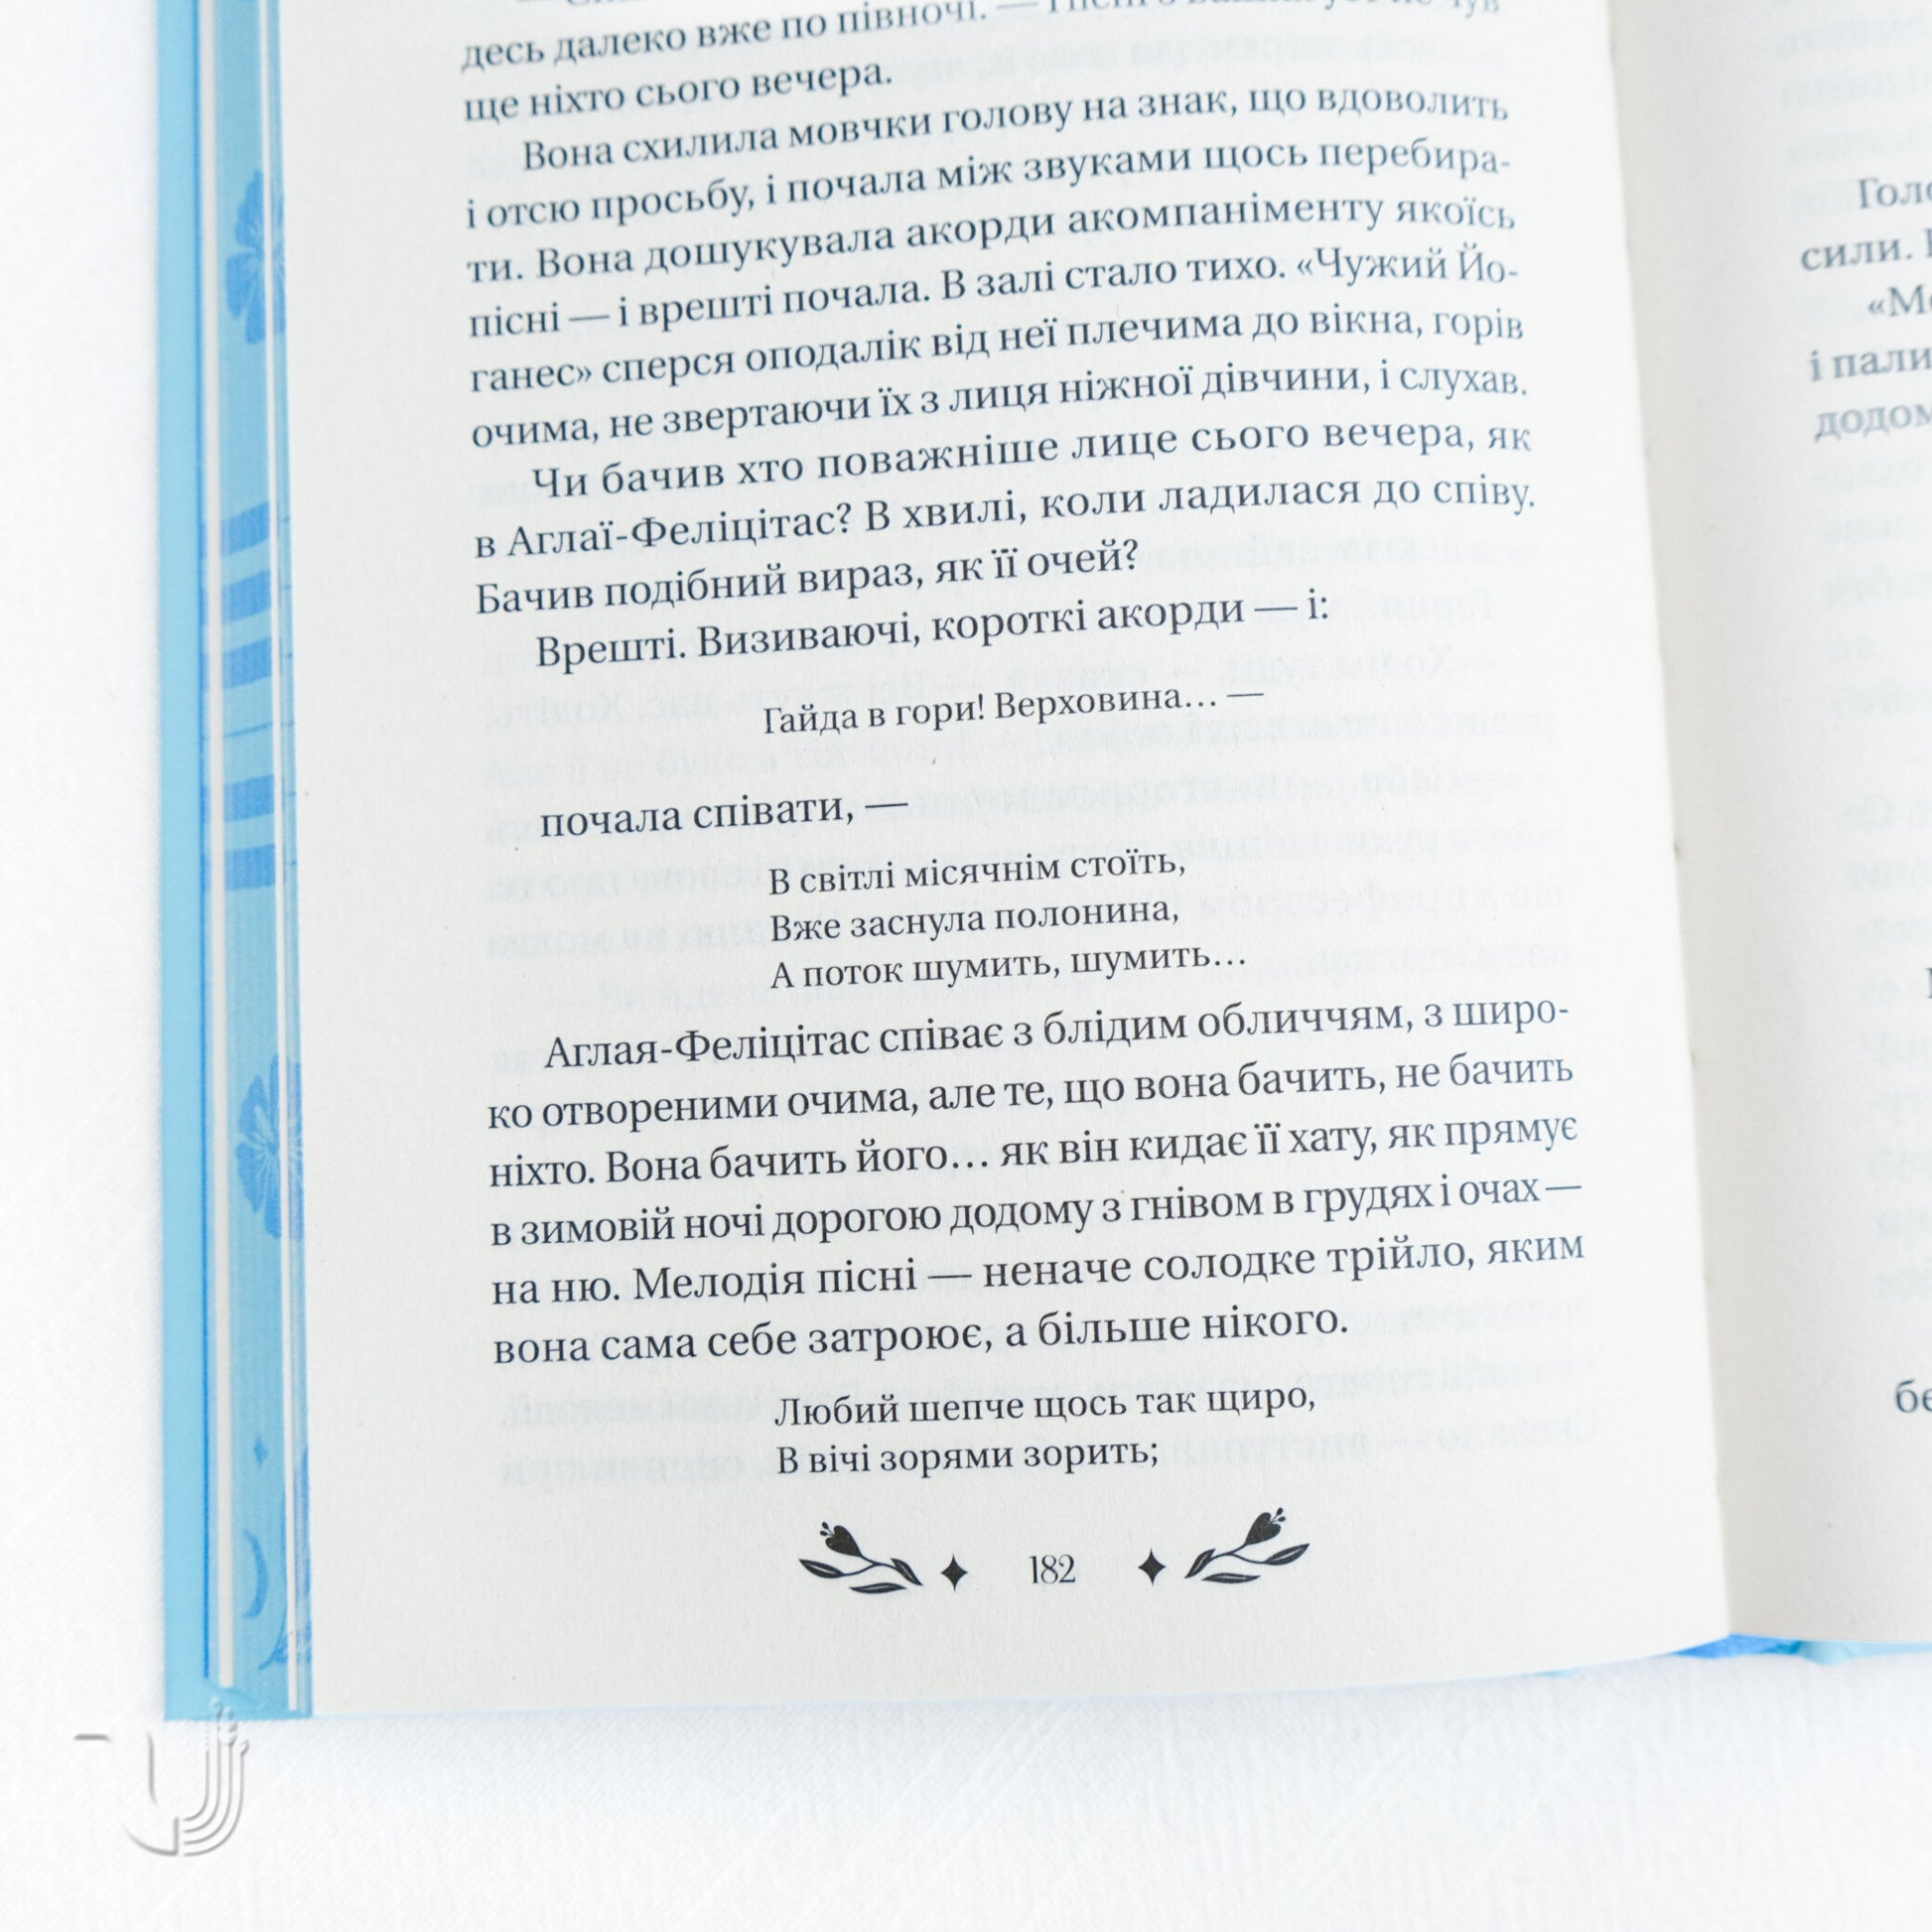 десь далеко вже по півночі. —
ще ніхто сього вечера.
Вона схилила мовчки голову на знак, що вдоволить
і отсю просьбу, і почала між звуками щось перебира-
ти. Вона дошукувала акорди акомпаніменту якоїсь
пісні — і врешті почала. В залі стало тихо. «Чужий Йо-
ганес» сперся оподалік від неї плечима до вікна, горів
очима, не звертаючи їх з лиця ніжної дівчини, і слухав.
Чи бачив хто поважніше лице сього вечера, як
в Аглаї-Феліцітас? В хвилі, коли ладилася до співу.
Бачив подібний вираз, як її очей?
Врешті. Визиваючі, короткі акорди — і:
Гайда в гори! Верховина... —
почала співати, —
В світлі місячнім стоїть,
Вже заснула полонина,
А поток шумить, шумить...
Аглая-Феліцітас співає з блідим обличчям, з широ-
ко отвореними очима, але те, що вона бачить, не бачить
ніхто. Вона бачить його... як він кидає її хату, як прямує
в зимовій ночі дорогою додому з гнівом в грудях і очах —
на ню. Мелодія пісні — неначе солодке трійло, яким
вона сама себе затроює, а більше нікого.
Любий шепче щось так щиро,
В вічі зорями зорить;
182
сили.
і пали